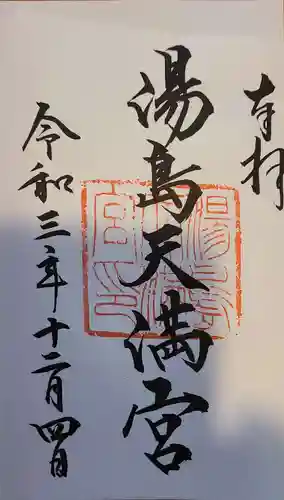 奉拝
湯島天満宮
令和三年十二月四日